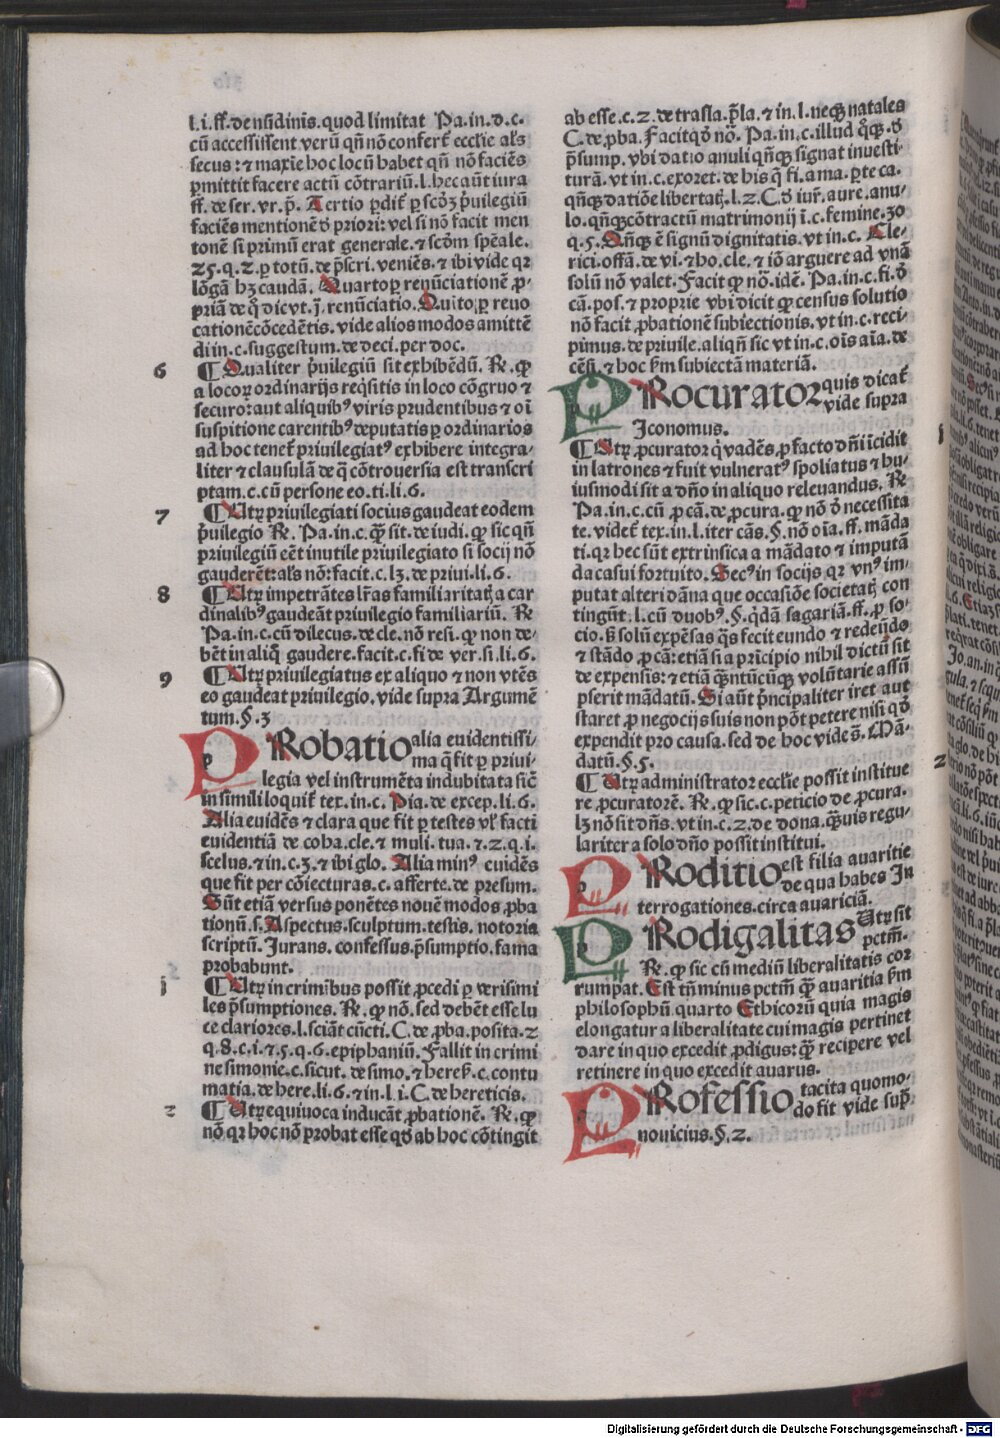 l.i.ff. de nsidinis. quod limitat Pa. in. d.c.
cū accessissent verū qñ nō confert̄ ecclie als
secus: ⁊ maxie hoc locū habet qñ nō faciēs
ꝑmittit facere actū cōtrariū. l. hec aūt iura
ff. de ser. vr. p̄. Tertio ꝑdit̄ ꝑ scōꝫ p̄uilegiū
faciēs mentionē d̄ priori: vel si nō facit men
tonē si primū erat generale. ⁊ scōm sp̄ale.
25. q. 2. ꝑ totū. de p̄scri. veniēs. ⁊ ibi vide qꝛ
lōgā hꝫ caudā. Quarto ꝑ renūciationē ꝓ-
priā de q̄ dicvt. j̄. renūciatio. Quito ꝑ reuo
cationē cōcedētis. vide alios modos amittē
di in. c. suggestum. de deci. per doc.
6 ¶ Qualiter p̄uilegiū sit exhibēdū. ℞. ꝙ
a locoꝝ ordinarijs reqͥsitis in loco cōgruo ⁊
securo: aut aliquibꝰ viris prudentibus ⁊ oī
suspitione carentibꝰ deputatis ꝑ ordinarios
ad hoc tenet̄ priuilegiatꝰ exhibere integra-
liter ⁊ clausulā de q̄ cōtrouersia est transcri
ptam. c. cū persone eo. ti. li. 6.
7 ¶ Utꝝ priuilegiati socius gaudeat eodem
p̄uilegio ℞. Pa. in. c. quā sit. de iudi. ꝙ sic qñ
priuilegiū eēt inutile priuilegiato si socij nō
gauderēt: als nō: facit. c. lꝫ. de priui. li. 6.
8 ¶ Utꝝ impetrātes lr̄as familiaritatꝫ a car
dinalibꝰ gaudeāt priuilegio familiariū. ℞
Pa. in. c. cū dilecus. de cle. nō resi. ꝙ non de-
bēt in aliq̄ gaudere. facit. c. fi de ver. si. li. 6.
9 ¶ Utꝝ priuilegiatus ex aliquo ⁊ non vtēs
eo gaudeat priuilegio. vide supra Argumē
tum. §. 3
PRobatio alia euidentissi-
ma q̄ fit ꝑ priui-
legia vel instrumēta indubitata sic̄
in simili loquit̄ tex. in. c. Pia. de excep. li. 6.
Alia euidēs ⁊ clara que fit ꝑ testes vl̄ facti
euidentiā de coha. cle. ⁊ muli. tua. ⁊ 2. q. i.
scelus. ⁊ in. c. 3. ⁊ ibi glo. Alia minꝰ euidēs
que fit per cōiecturas. c. afferte. de presum.
Sūt etiā versus ponētes nouē modos ꝓba
tionū. s. Aspectus. sculptum. testis. notoria
scriptū. Jurans. confessus. p̄sumptio. fama
probabunt.
i ¶ Utꝝ in crimībus possit ꝓcedi ꝑ verisimi
les p̄sumptiones. ℞. ꝙ nō. sed debēt esse lu
ce clariores. l. sciāt cūcti. C. de ꝓba. posita. 2
q. 8. c. i. ⁊ 5. q. 6. epiphaniū. Fallit in crimi
ne simonie. c. sicut. de simo. ⁊ heres̄. c. contu
matia. de here. li. 6. ⁊ in. l. i. C. de hereticis.
2 ¶ Utꝝ equiuoca inducāt ꝓbationē. ℞. ꝙ
nō qꝛ hoc nō probat esse qd̄ ab hoc cōtingit
ab esse. c. 2. de trasla. p̄la. ⁊ in. l. neqꝫ natales
C. de ꝓba. Facit qd̄ nō. Pa. in. c. illud q̄qꝫ. d̄
p̄sump. vbi datio anuli qñqꝫ signat inuesti-
turā. vt in. c. ex oret. de his q̄ fi. a ma. ꝑte ca.
qñqꝫ datiōe libertatꝫ. l. 2. C. d̄ iur̄. aure. anu-
lo. qñqꝫ cōtractū matrimonij i. c. femine. 30
q. 5. Qñqꝫ ē signū dignitatis. vt in. c. Cle-
rici. offā. de vi. ⁊ ho. cle. ⁊ iō arguere ad vnā
solū nō valet. Facit ꝙ nō. idē. Pa. in. c. fi. d̄
cā. pos. ⁊ proprie vbi dicit ꝙ census solutio
nō facit ꝓbationē subiectionis. vt in. c. reci-
pimus. de priuile. aliqñ sic vt in. c. oīs aīa. de
cēsi. ⁊ hoc s̄m subiectā materiā.
PRocurator quis dicat̄
vide supra
Jconomus.
¶ Utꝝ ꝓcurator q̇ vadēs, ꝓ facto dn̄i īcidit
in latrones ⁊ fuit vulneratꝰ spoliatus ⁊ hu-
iusmodi sit a dn̄o in aliquo releuandus. ℞
Pa. in. c. cū ꝓ cā. de ꝓcura. ꝙ nō d̄ necessita
te. videt̄ tex. in. l. iter cās. §. nō oīa. ff. māda
ti. qꝛ hec sūt extrinsica a mādato ⁊ imputā
da casui fortuito. Secꝰ in socijs qꝛ vnꝰ im-
putat alteri dāna que occasiōe societatꝫ con
tingūt. l. cū duobꝰ. §. qͥdā sagariā. ff. ꝓ so-
cio. s̄ solū expēsas q̄s fecit eundo ⁊ redeūdo
⁊ stādo ꝓ cā: etiā si a prīcipio nihil dictū sit
de expensis: ⁊ etiā quātūcūqꝫ volūtarie assū
pserit mādatū. Si aūt p̄ncipaliter iret aut
staret ꝓ negocijs suis non pōt petere nisi qd̄
expendit pro causa. sed de hoc vide s̄. Mā-
datū. §. 5.
¶ Utꝝ administrator ecclie possit institue
re ꝓcuratorē. ℞. ꝙ sic. c. peticio de ꝓcura.
lꝫ nō sit dn̄s. vt in. c. 2. de dona. quis regu-
lariter a solo dn̄o possit institui.
PRoditio est filia auaritie
de qua habes In
terrogationes. circa auariciā.
PRodigalitas Utꝝ sit
pctm̄.
℞. ꝙ sic cū mediū liberalitatis cor
rumpat. Est tn̄ minus pctm̄ quā auaritia s̄m
philosophū quarto Ethicorū quia magis
elongatur a liberalitate cui magis pertinet
dare in quo excedit ꝓdigus: quā recipere vel
retinere in quo excedit auarus.
PRofessio tacita quomo-
do fit vide sup̄.
nouicius. §. 2.
Digitalisierung gefördert durch die Deutsche Forschungsgemeinschaft - DFG